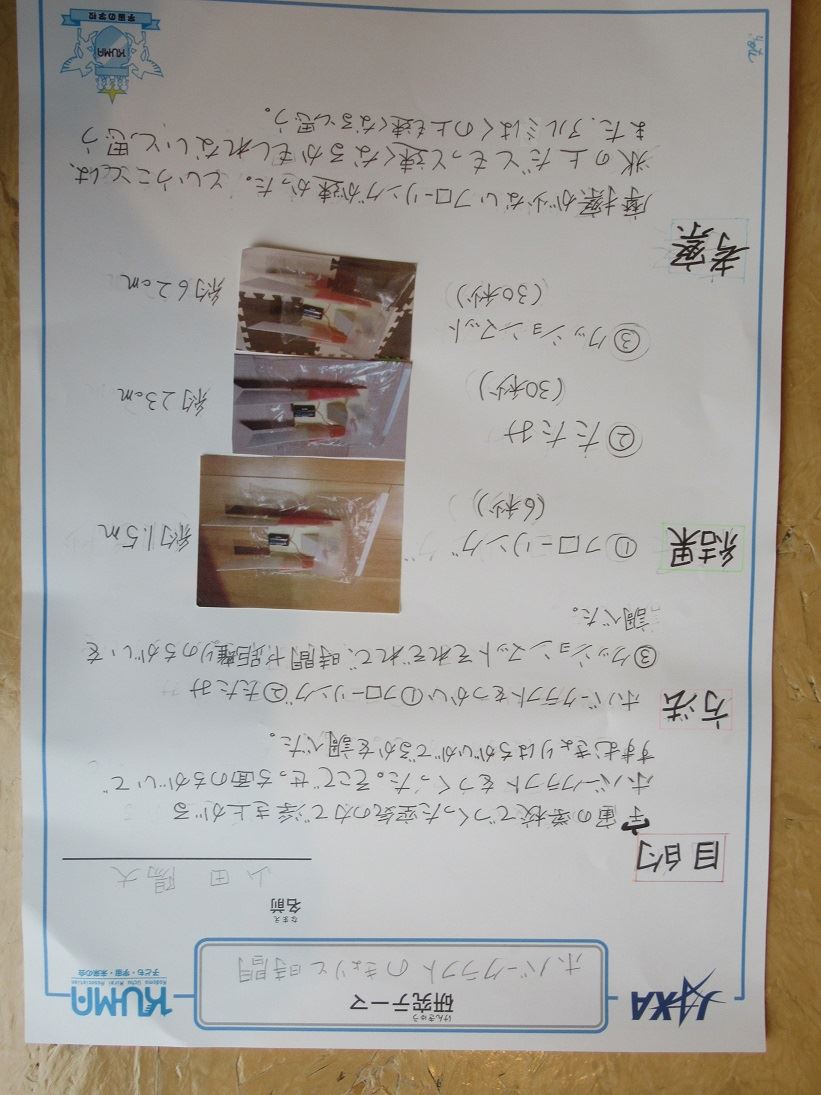 JAXA
けんきゅう
研究テーマ
KUMA
Kodomo Uchu Mirai Association
子ども・宇宙・未来の会
ホバークラフトのきょりと時間
なまえ
名前
山田 陽大
目的
宇宙の学校でつくった空気の力で浮き上がる
ホバークラフトをつくった。そこで、せっち面のちがいで
すすむきょりはちがいがでるかを調べた。
方法
ホバークラフトをつかい①フローリング②たたみ
③クッションマットそれぞれで、時間や距離のちがいを
調べた。
結果
①フローリング
(6秒)
約1.5m
②たたみ
(30秒)
約23cm
③クッションマット
(30秒)
約62cm
考察
摩擦が少ないフローリングが速かった。ということは、
氷の上だともっと速くなるかもしれないと思う
また、アルミはくの上も速くなると思う。
KUMA
宇宙の学校